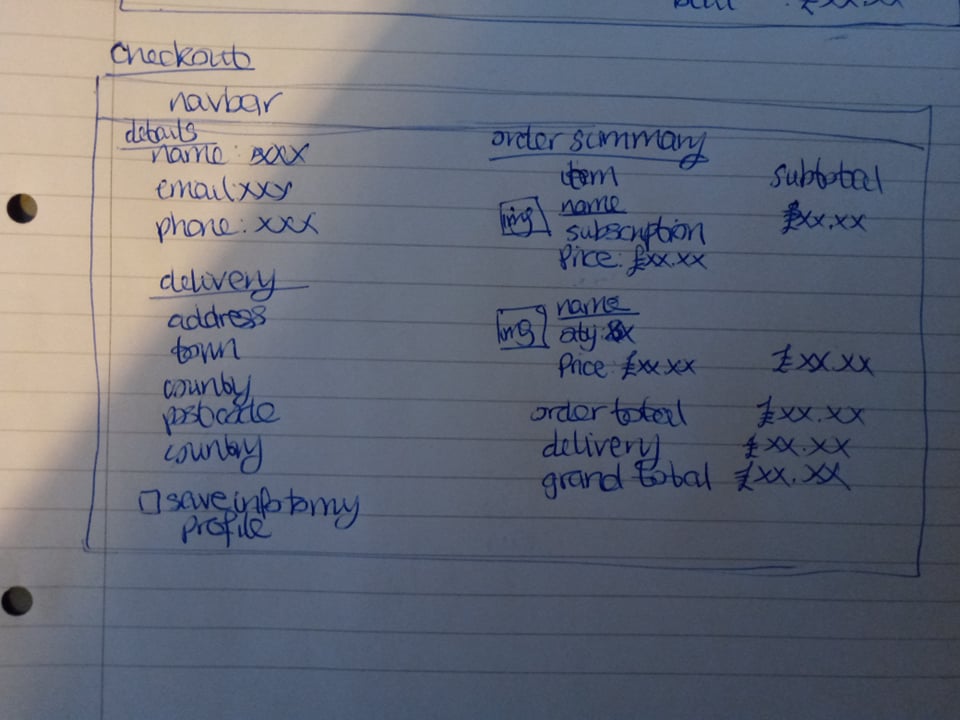 £xx.xx
Checkout
navbar
details
name: xxx
email xxx
phone: xxx
delivery
address
town
county
postcode
country
save info to my
profile
order summary
item subtotal
img name £xx.xx
subscription
Price: £xx.xx
img name
qty: x
Price: £xx.xx £xx.xx
order total £xx.xx
delivery £xx.xx
grand total £xx.xx